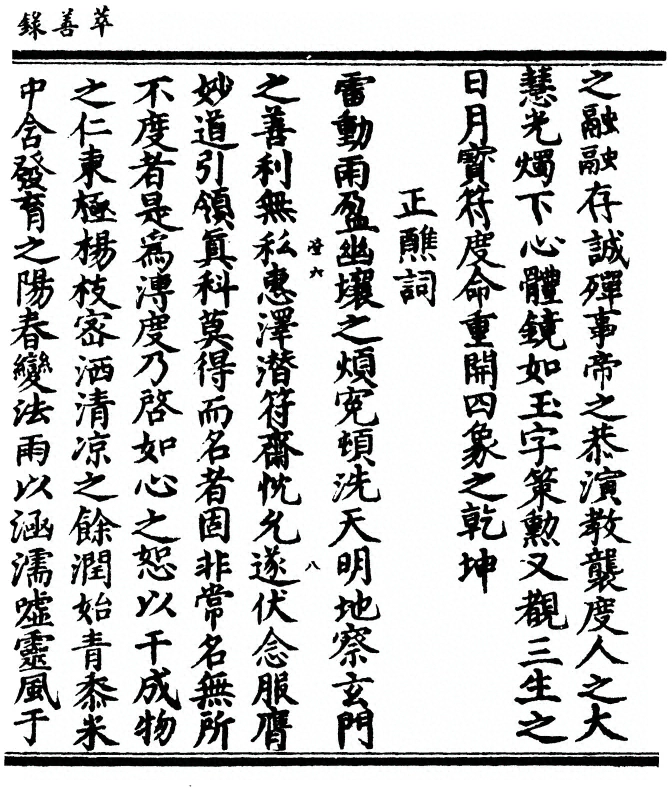 萃善錄
之融融存誠殫事帝之恭演教襲度人之大
慧光燭下心體鏡如玉字策勲又觀三生之
日月寳符度命重開四象之乾坤
正醮詞
雷動雨盈幽壤之煩寃頓洗天明地察玄門
之善利無私惠澤潜符齋忱允遂伏念服膺
妙道引領眞科莫得而名者固非常名無所
不度者是爲溥度乃啓如心之恕以干成物
之仁東極楊枝宻洒清凉之餘潤始青黍米
中含發育之陽春變法雨以涵濡噓靈風于